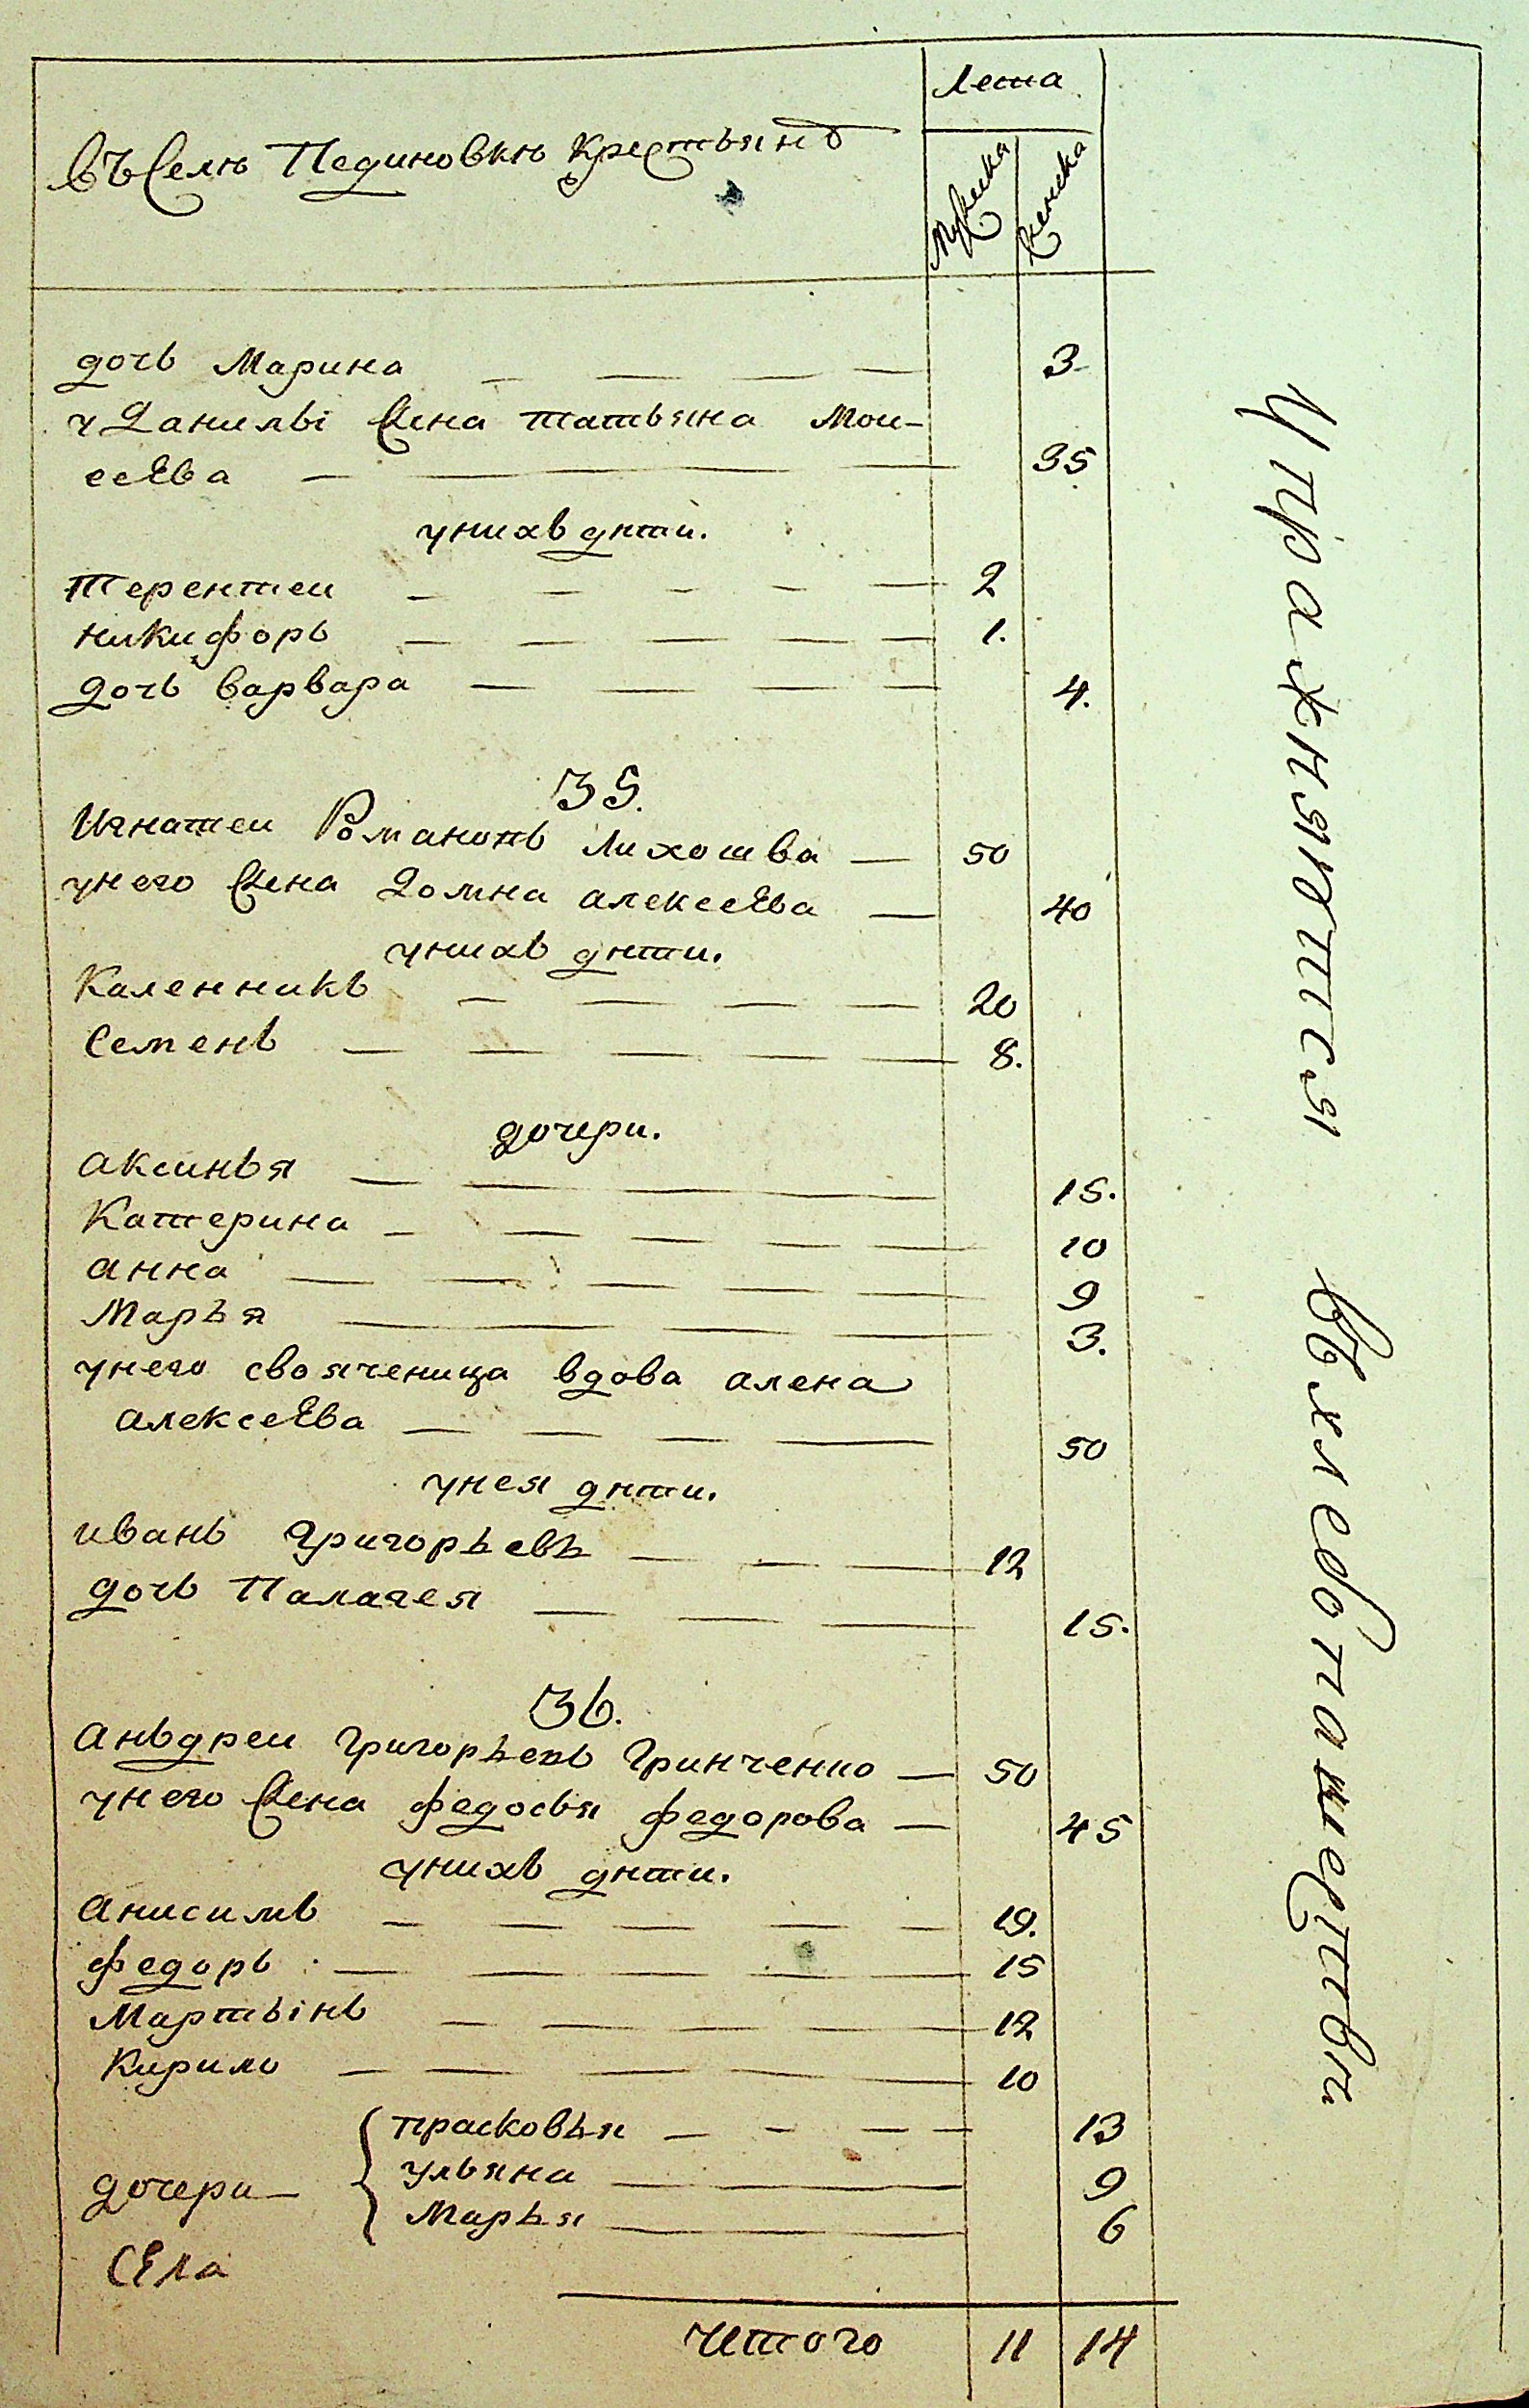 Въ Селѣ Пединовкѣ Крестьянъ
Лета
Мужеска
Женска
дочь Марина — — — — 3
у Данилы Жена татьяна Мои-
сеЕва — — — 35
у нихъ дѣти.
терентеи — — — — — 2
никифоръ — — — — — 1.
дочь варвара — — — — 4.
35.
Игнатеи Романовъ Лихошва — 50
у него Жена Домна алексеЕва — 40
у нихъ дѣти.
Каленникъ — — — — 20
Семенъ — — — — — 8.
дочери.
аксинья — — — — — 15.
Катерина — — — — — 10
анна — — — — — 9
Марья — — — — 3.
у него своячeница вдова алена
алексеЕва — — — — 50
у нея дѣти.
иванъ Григорьевъ — — — 12
дочь Палагея — — — 15.
36.
аньдреи Григорьевъ Гринченко — 50
у него Жена федосья федорова — 45
у нихъ дѣти.
анисимъ — — — — — 19.
федоръ — — — — — 15
Мартынъ — — — — — 12
Кирило — — — — — 10
дочери —
прасковья — — — — 13
ульяна — — — 9
Марья — — — 6
СЕла
Итого 11 14
Упражняются въ хлебопашествѣ